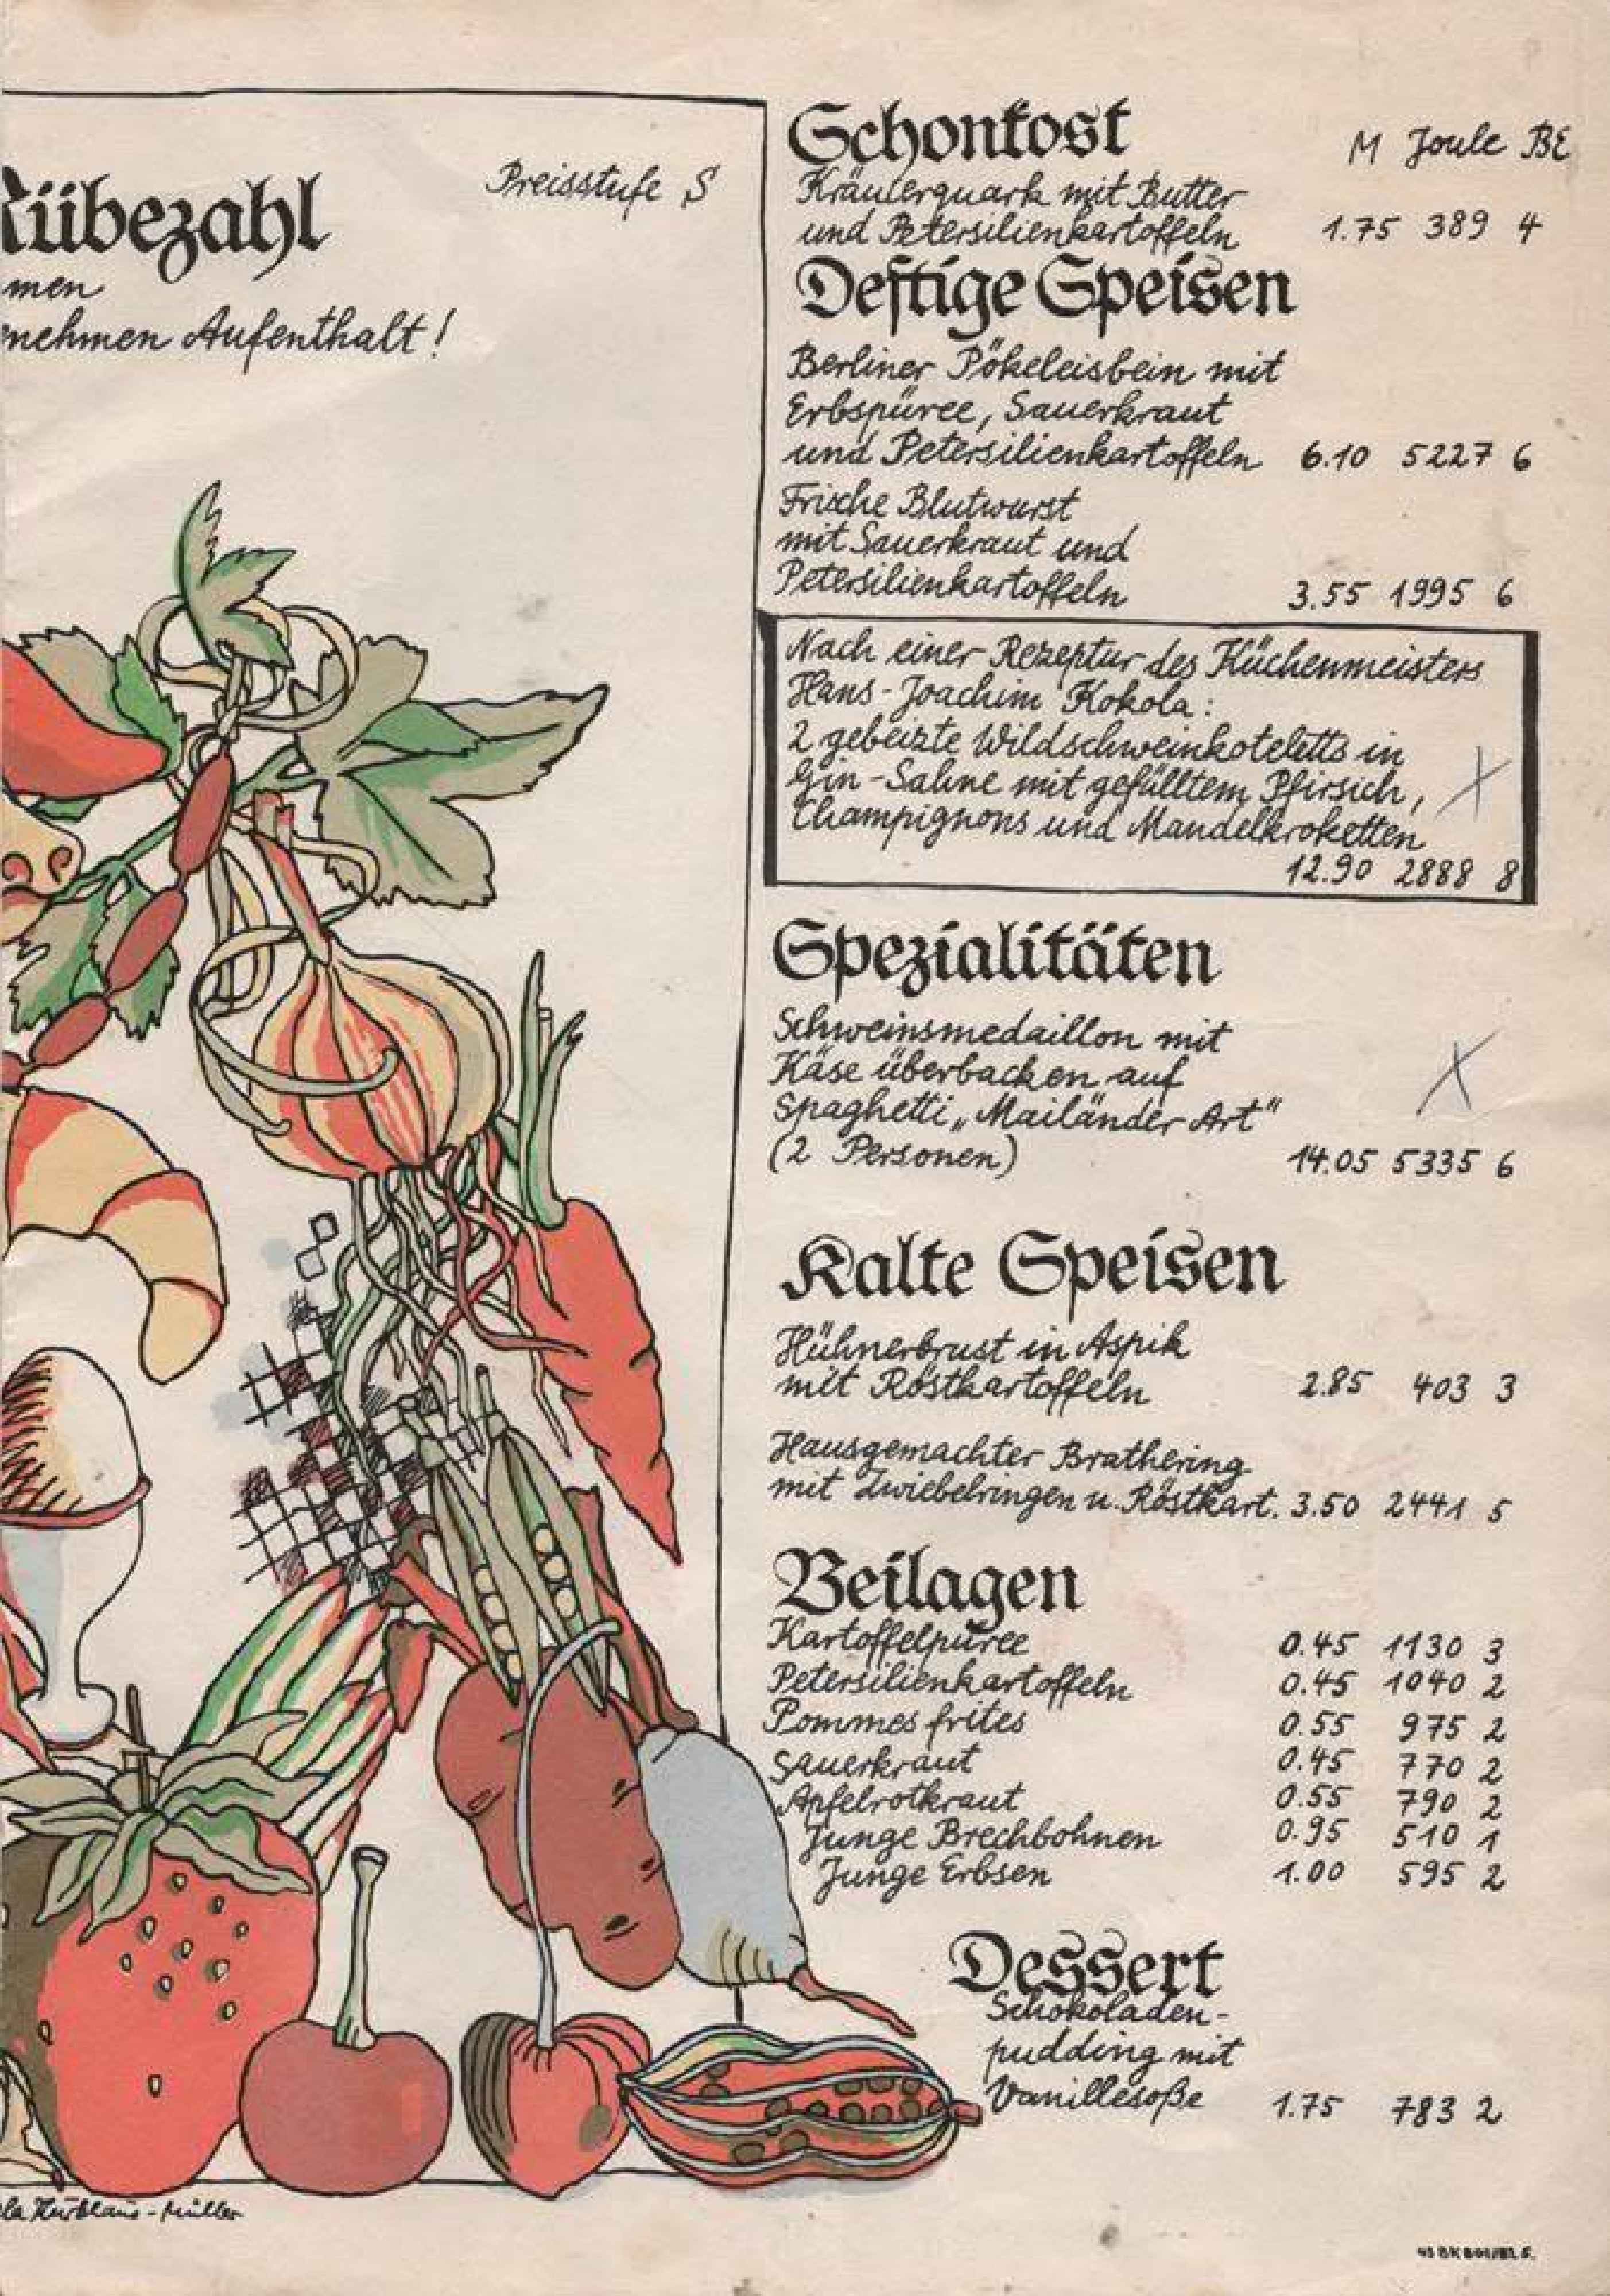 Rübezahl
Preisstufe S
men
nehmen Aufenthalt!
Schonkost
M Joule BE
Kräuterquark mit Butter
und Petersilienkartoffeln 1.75 389 4
Deftige Speisen
Berliner Pökeleisbein mit
Erbspüree, Sauerkraut
und Petersilienkartoffeln 6.10 5227 6
Frische Blutwurst
mit Sauerkraut und
Petersilienkartoffeln 3.55 1995 6
Nach einer Rezeptur des Küchenmeisters
Hans-Joachim Kokola:
2 gebeizte Wildschweinkoteletts in
Gin-Sahne mit gefülltem Pfirsich,
Champignons und Mandelkroketten
12.90 2888 8
Spezialitäten
Schweinsmedaillon mit
Käse überbacken auf
Spaghetti „Mailänder Art"
(2 Personen) 14.05 5335 6
Kalte Speisen
Hühnerbrust in Aspik
mit Röstkartoffeln 2.85 403 3
Hausgemachter Brathering
mit Zwiebelringen u. Röstkart. 3.50 2441 5
Beilagen
Kartoffelpüree 0.45 1130 3
Petersilienkartoffeln 0.45 1040 2
Pommes frites 0.55 975 2
Sauerkraut 0.45 770 2
Apfelrotkraut 0.55 790 2
Junge Brechbohnen 0.95 510 1
Junge Erbsen 1.00 595 2
Dessert
Schokoladen-
pudding mit
Vanillesoße 1.75 783 2